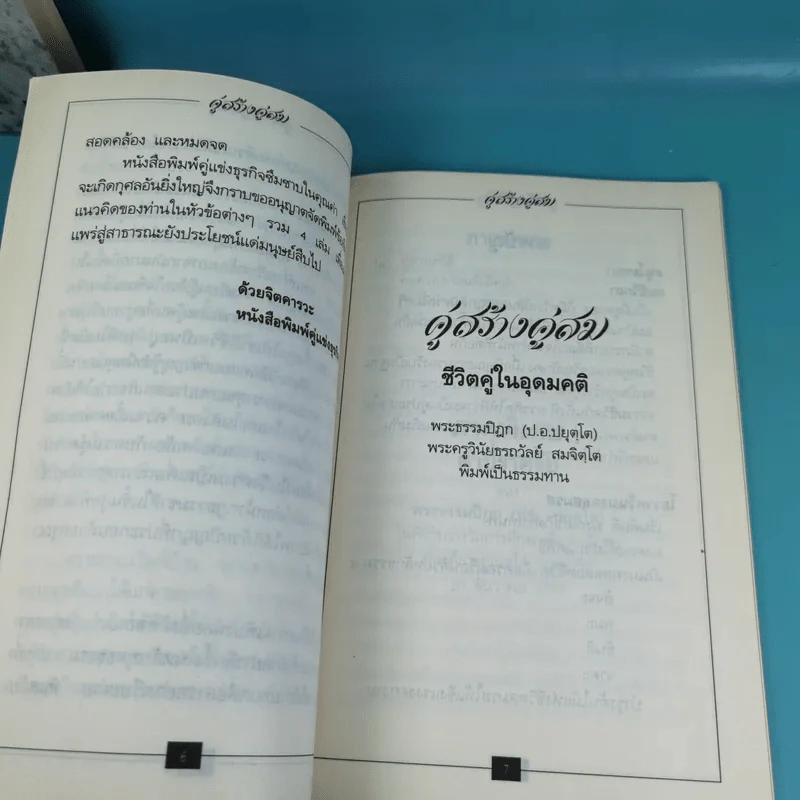 คู่สร้างคู่สม
สอดคล้อง และหมดจด
หนังสือพิมพ์คู่แข่งธุรกิจซึมซาบในคุณค่า
จะเกิดกุศลอันยิ่งใหญ่จึงกราบขออนุญาตจัดพิมพ์
แนวคิดของท่านในหัวข้อต่างๆ รวม 4 เล่ม
แพร่สู่สาธารณะยังประโยชน์แด่มนุษย์สืบไป
ด้วยจิตคารวะ
หนังสือพิมพ์คู่แข่งธุรกิจ
6
คู่สร้างคู่สม
คู่สร้างคู่สม
ชีวิตคู่ในอุดมคติ
พระธรรมปิฎก (ป.อ.ปยุตฺโต)
พระครูวินัยธรถวัลย์ สมจิตฺโต
พิมพ์เป็นธรรมทาน
7